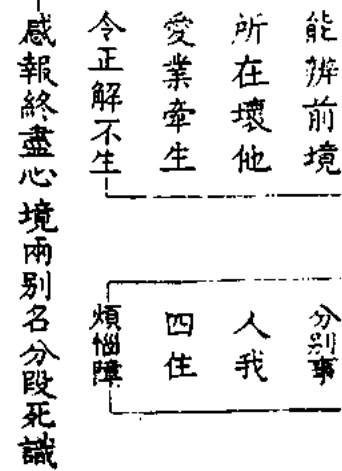 能辨前境
所在壞他
愛業牽生
令正解不生
分別事
人我
四住
煩惱障
感報終盡心境兩別名分段死識